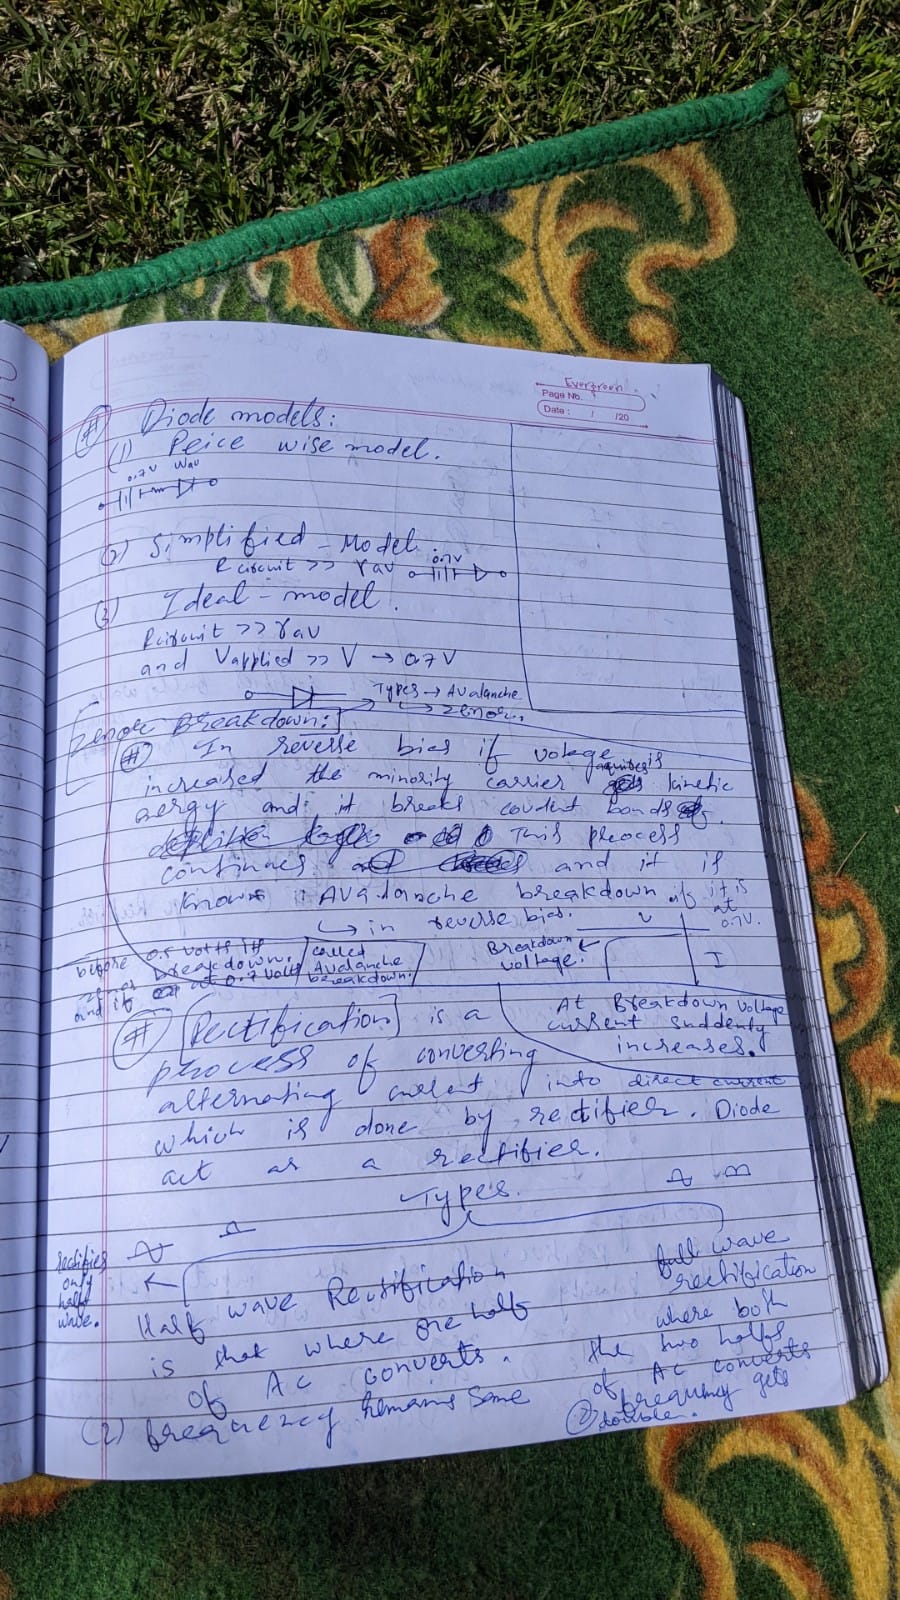 Evergreen
Page No.
Date : / /20
(#) Diode models:
(1) Peice wise model.
0.7V
(2) Simplified - Model.
Rcircuit >> rav 0.7V
(3) Ideal - model.
Rcircuit >> rav
and Vapplied >> V → 0.7V
Types → Avalanche
→ zenor.
Breakdown:
(#) In reverse bias if volage is
increased the minority carrier aquires kinetic
and it breaks covalent bonds
This process
continues and it is
known Avalanche breakdown if it is
at
0.7V.
↳ in reverse bias.
V
I
Breakdown
voltage.
before 0.5 volts
breakdown.
and if at 0.7 volts
called
Avalanche
breakdown.
At Breakdown voltage
current suddenly
increases.
(#) [Rectification] is a
process of converting
alternating current into direct current
which is done by rectifier. Diode
act as a rectifier.
Types.
rectifies
only
half
wave.
Half wave Rectification
is that where one half
of AC converts.
(2) frequency remains same
full wave
rectification
where both
the two halfs
of AC converts
(2) frequency gets
double.